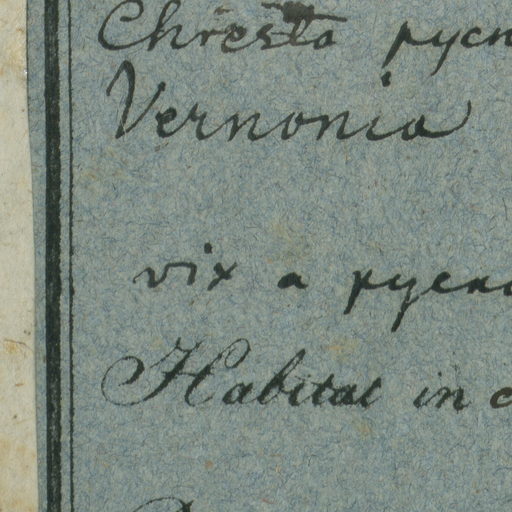 Chresta pycn
Vernonia
vix a pycno
Habitat in c